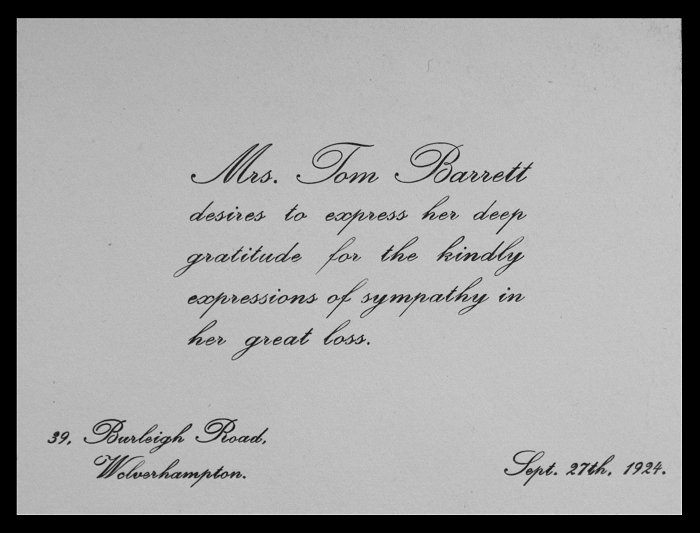 Mrs. Tom Barrett
desires to express her deep
gratitude for the kindly
expressions of sympathy in
her great loss.
39, Burleigh Road,
Wolverhampton.
Sept. 27th, 1924.